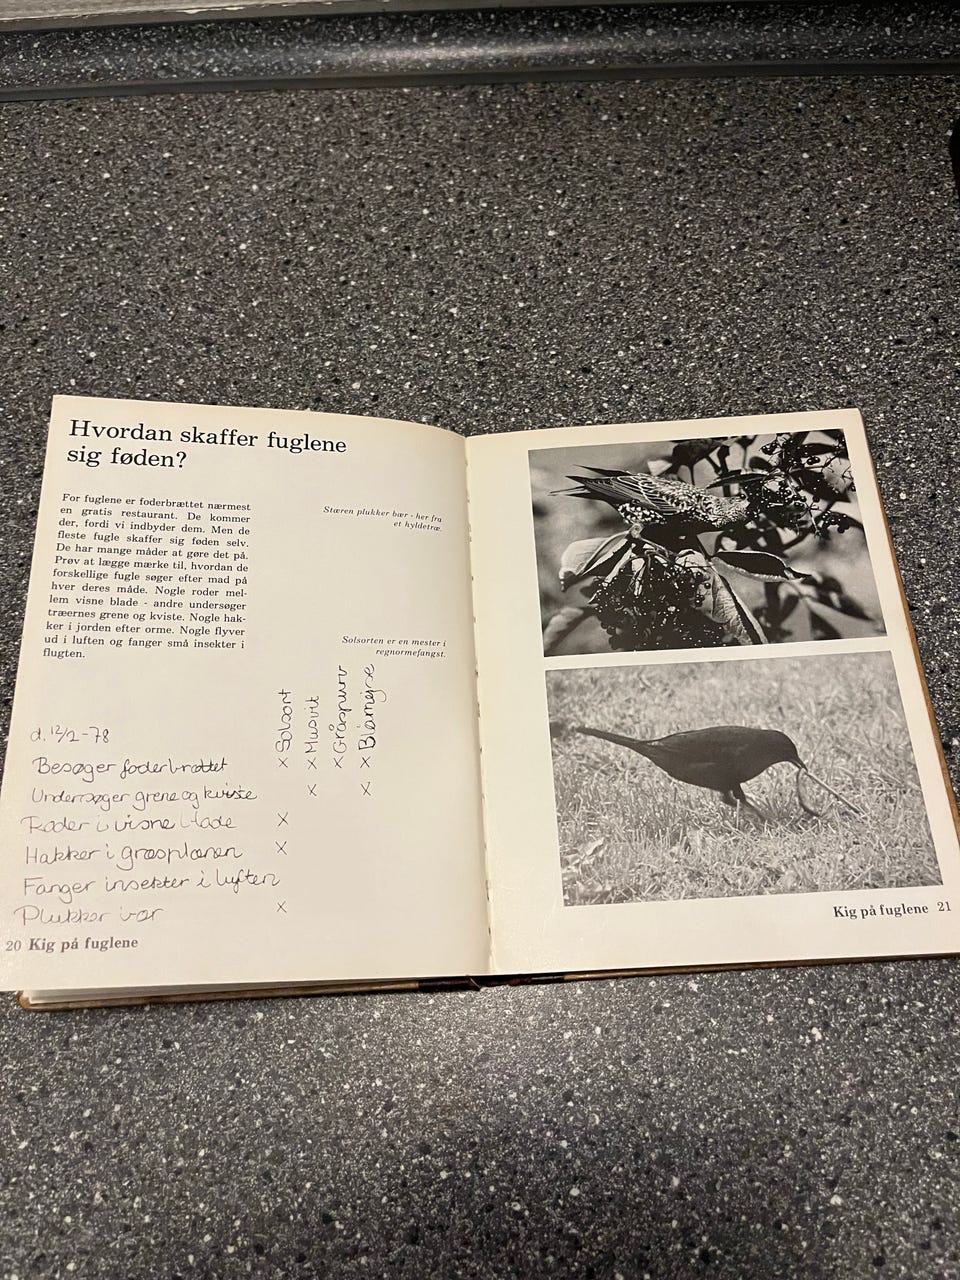 Hvordan skaffer fuglene
sig føden?
For fuglene er foderbrættet nærmest
en gratis restaurant. De kommer
der, fordi vi indbyder dem. Men de
fleste fugle skaffer sig føden selv.
De har mange måder at gøre det på.
Prøv at lægge mærke til, hvordan de
forskellige fugle søger efter mad på
hver deres måde. Nogle roder mel-
lem visne blade - andre undersøger
træernes grene og kviste. Nogle hak-
ker i jorden efter orme. Nogle flyver
ud i luften og fanger små insekter i
flugten.
Stæren plukker bær - her fra
et hyldetræ.
Solsorten er en mester i
regnormefangst.
d. 12/2-78
Solsort
Musvit
Gråspurv
Blåmejse
Besøger foderbrættet x x x x
Undersøger grene og kviste x x
Roder i visne blade x
Hakker i græsplænen x
Fanger insekter i luften
Plukker bær x
20 Kig på fuglene
Kig på fuglene 21